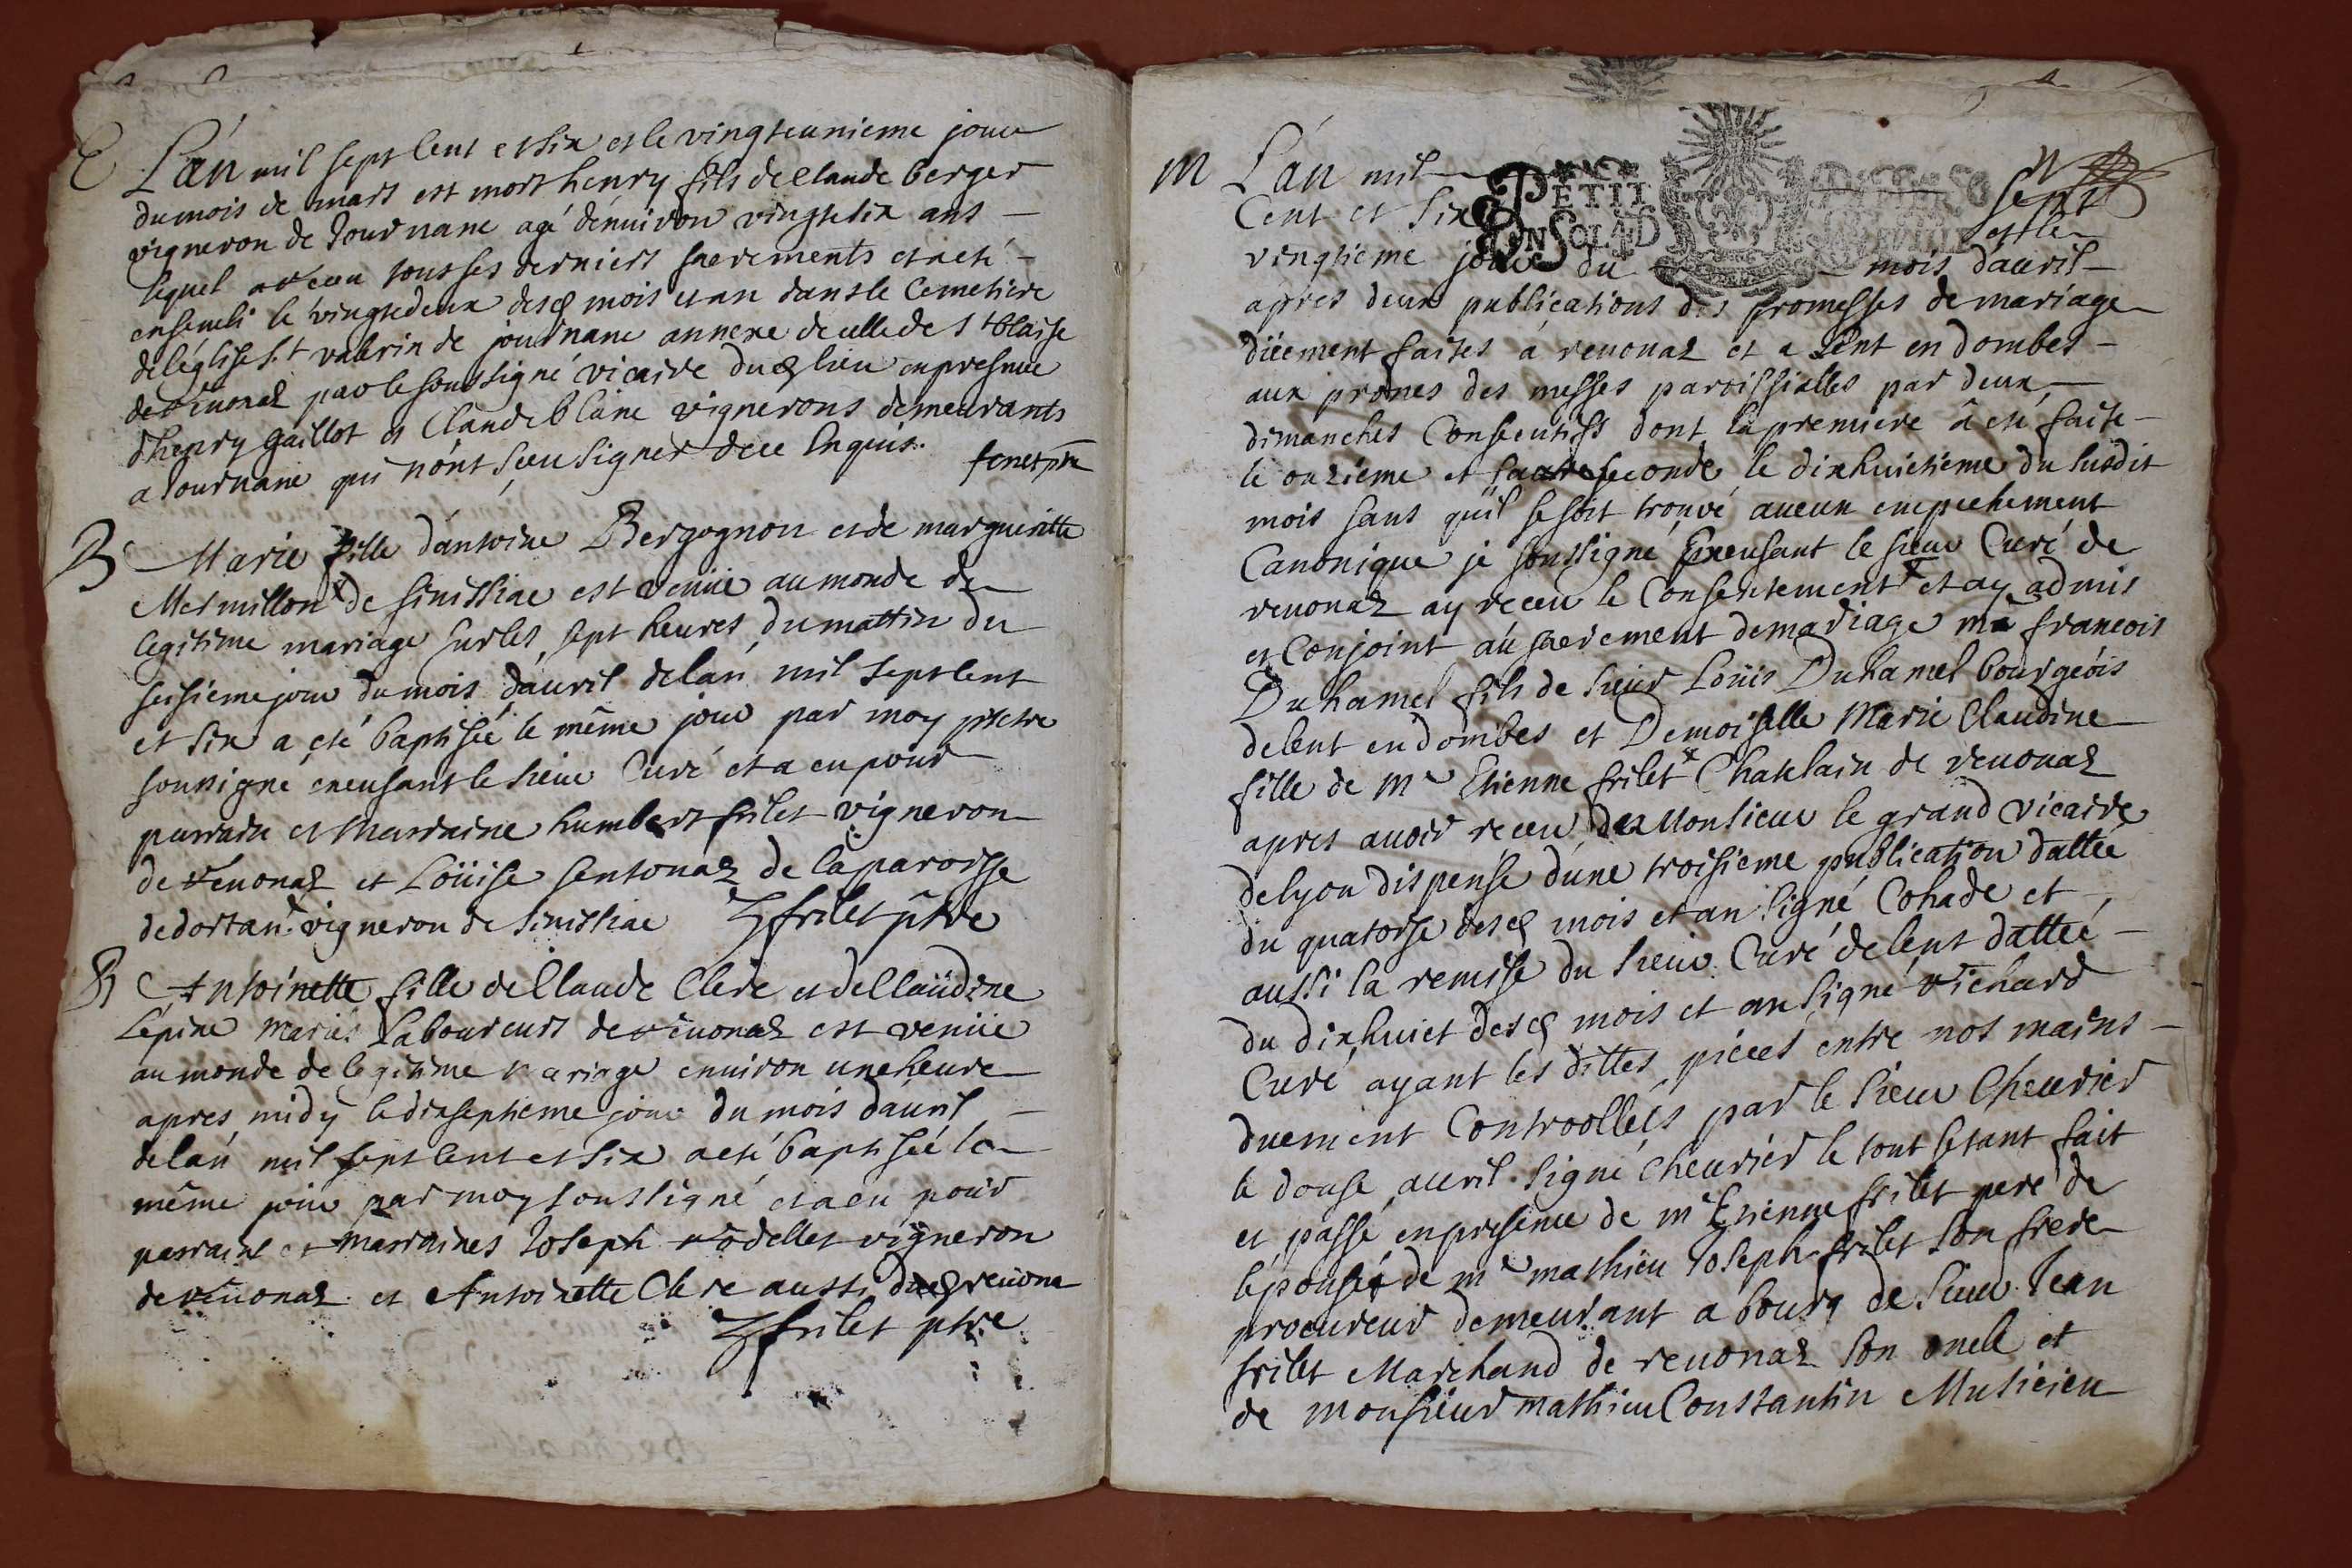 E
L'an mil sept cent et six et le vingteunieme jour
du mois de mars est mort henry fils de Claude berger
vigneron de Journane agé d'enuiron vingtesix ans
lequel a receu tous ses derniers sacrements et a eté
enseueli le vingtedeux desd mois et an dans le Cemetiere
de l'église St valerin de journane annexe de celle de St blaise
de reuonas par le soussigné vicaire dud lieu en presence
d'henry gaillot et Claude blanc vignerons demeurants
a Journane qui n'ont sceu signer de ce Enquis. fenet ptre
B
Marie fille d'antoine Bergognon et de margueritte
Mermillon de simissiac est venüe au monde de
legitime mariage sur les sept heures du mattin du
seisieme jour du mois d'auril de l'an mil sept cent
et six a eté baptisée le même jour par moy prêtre
soussigné excusant le sieur Curé et a eu pour
parrain et Marraine humbert frilet vigneron
de reuonas et Loüise sentonas de la paroisse
de dortan vigneron de simissiac frilet ptre
B
Antoinette fille de Claude Clerc et de Claudine
Lépine mariés Laboureurs de reuonas est venüe
au monde de legitime mariage enuiron une heure
apres midy le dixseptieme jour du mois d'auril
de l'an mil sept cent et six a eté baptisée le
même jour par moy soussigné et a eu pour
parrains et marraines Joseph rodellet vigneron
de reuonas et Antoinette Clerc aussi dud reuona
frilet ptre
M
L'an mil sept
PETIT
EN SOL 4D
Cent et six et le
vingtieme jour du mois d'auril
apres deux publications des promesses de mariage
düement faites a reuonas et a Lent en dombes
aux prônes des messes paroissialles par deux
dimanches Consecutifs dont la premiere a eté faite
le onzieme et seconde le dixhuictieme du susdit
mois sans qu'il se soit trouvé aucun empechement
Canonique je soussigné Excusant le sieur Curé de
reuonas ay receu le Consentement et ay admis
et Conjoint au sacrement de mariage me françois
Duhamel fils de sieur Loüis Duhamel bourgeois
de lent en dombes et Demoiselle Marie Claudine
fille de Me Etienne frilet Chatelain de reuonas
apres auoir receu de Monsieur le grand vicaire
de lyon dispense d'une troisieme publication dattée
du quatorse desd mois et an signé Cohade et
aussi la remise du sieur Curé de lent dattée
du dixhuict desd mois et an signé richard
Curé ayant les dittes piéces entre nos mains
duement Controollées par le sieur Cheurier
le douse auril. signé cheurier le tout s'etant fait
et passé en presence de me Etienne frilet pere de
l'épousée de me mathieu Joseph frilet son frere
procureur demeurant a bourg de sieur Jean
frilet Marchand de reuonas son oncle et
de monsieur mathieu Constantin Musicien